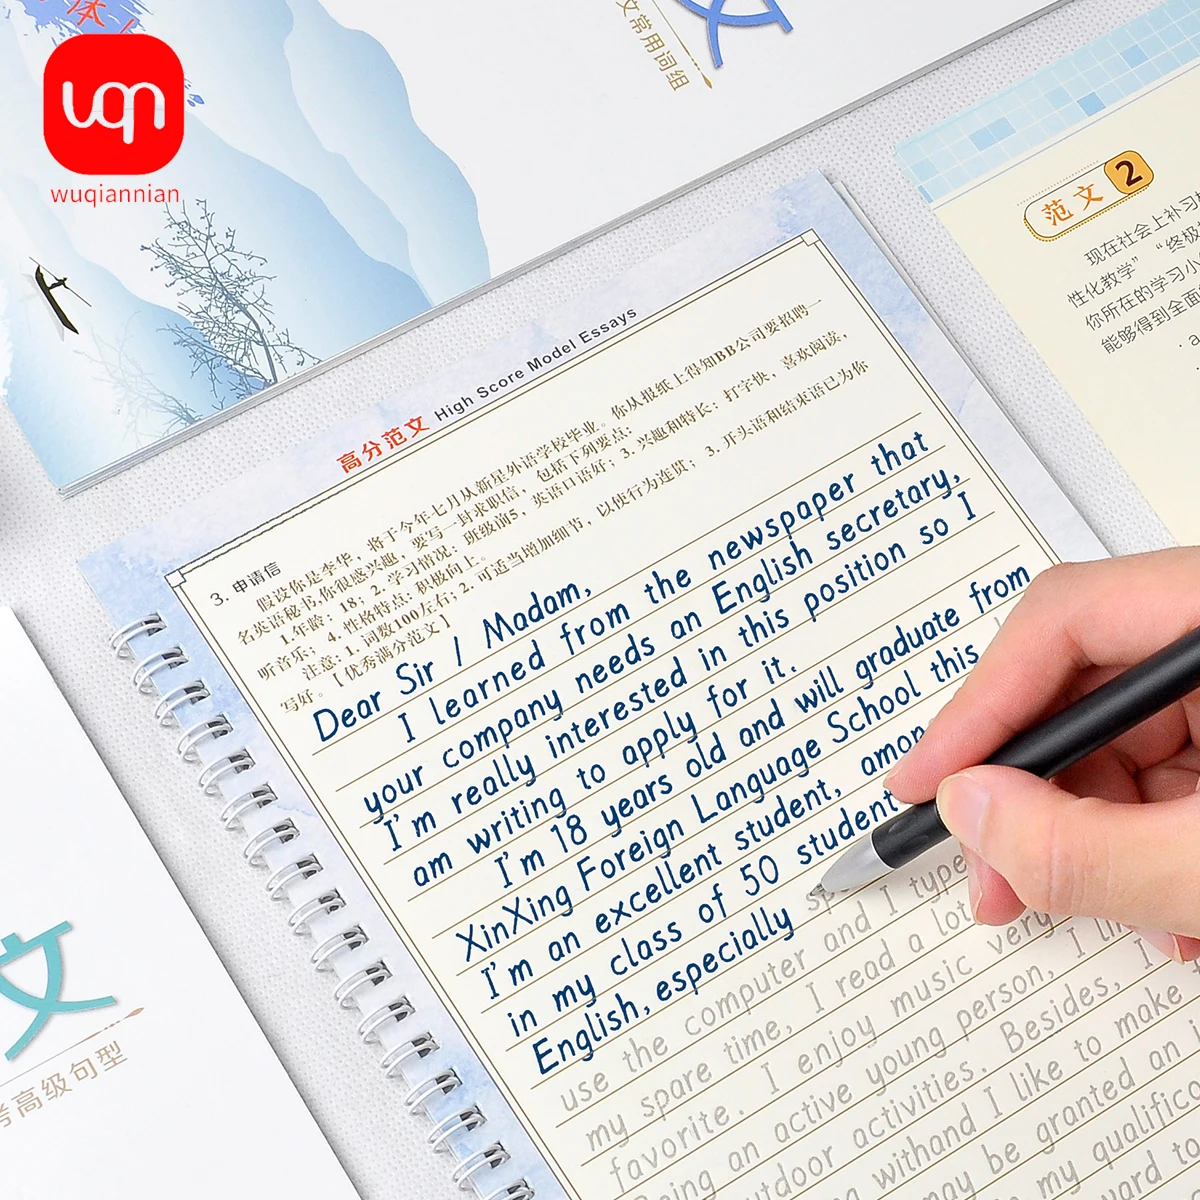 wuqiannian
文常用词组
范文 2
现在社会上补习
性化教学” “终极
你所在的学习小
能够得到全面
高分范文 High Score Model Essays
3. 申请信
假设你是李华，将于今年七月从新星外语学校毕业。你从报纸上得知BB公司要招聘一
名英语秘书,你很感兴趣，要写一封求职信，包括下列要点:
1.年龄：18；2.学习情况：班级前5，英语口语好；3.兴趣和特长：打字快，喜欢阅读，
听音乐；4.性格特点：积极向上。
注意：1.词数100左右；2.可适当增加细节，以使行为连贯；3.开头语和结束语已为你
写好。【优秀满分范文】
Dear Sir / Madam,
I learned from the newspaper that
your company needs an English secretary,
I'm really interested in this position so I
am writing to apply for it.
I'm 18 years old and will graduate from
XinXing Foreign Language School this
I'm an excellent student, among
in my class of 50 student
English, especially sp
use the computer and I type
my spare time, I read a lot
favorite. I enjoy music very
Being an active young person, I li
outdoor activities. Besides, I
withand I like to make
may be granted an
my qualific
ward to
文
考高级句型